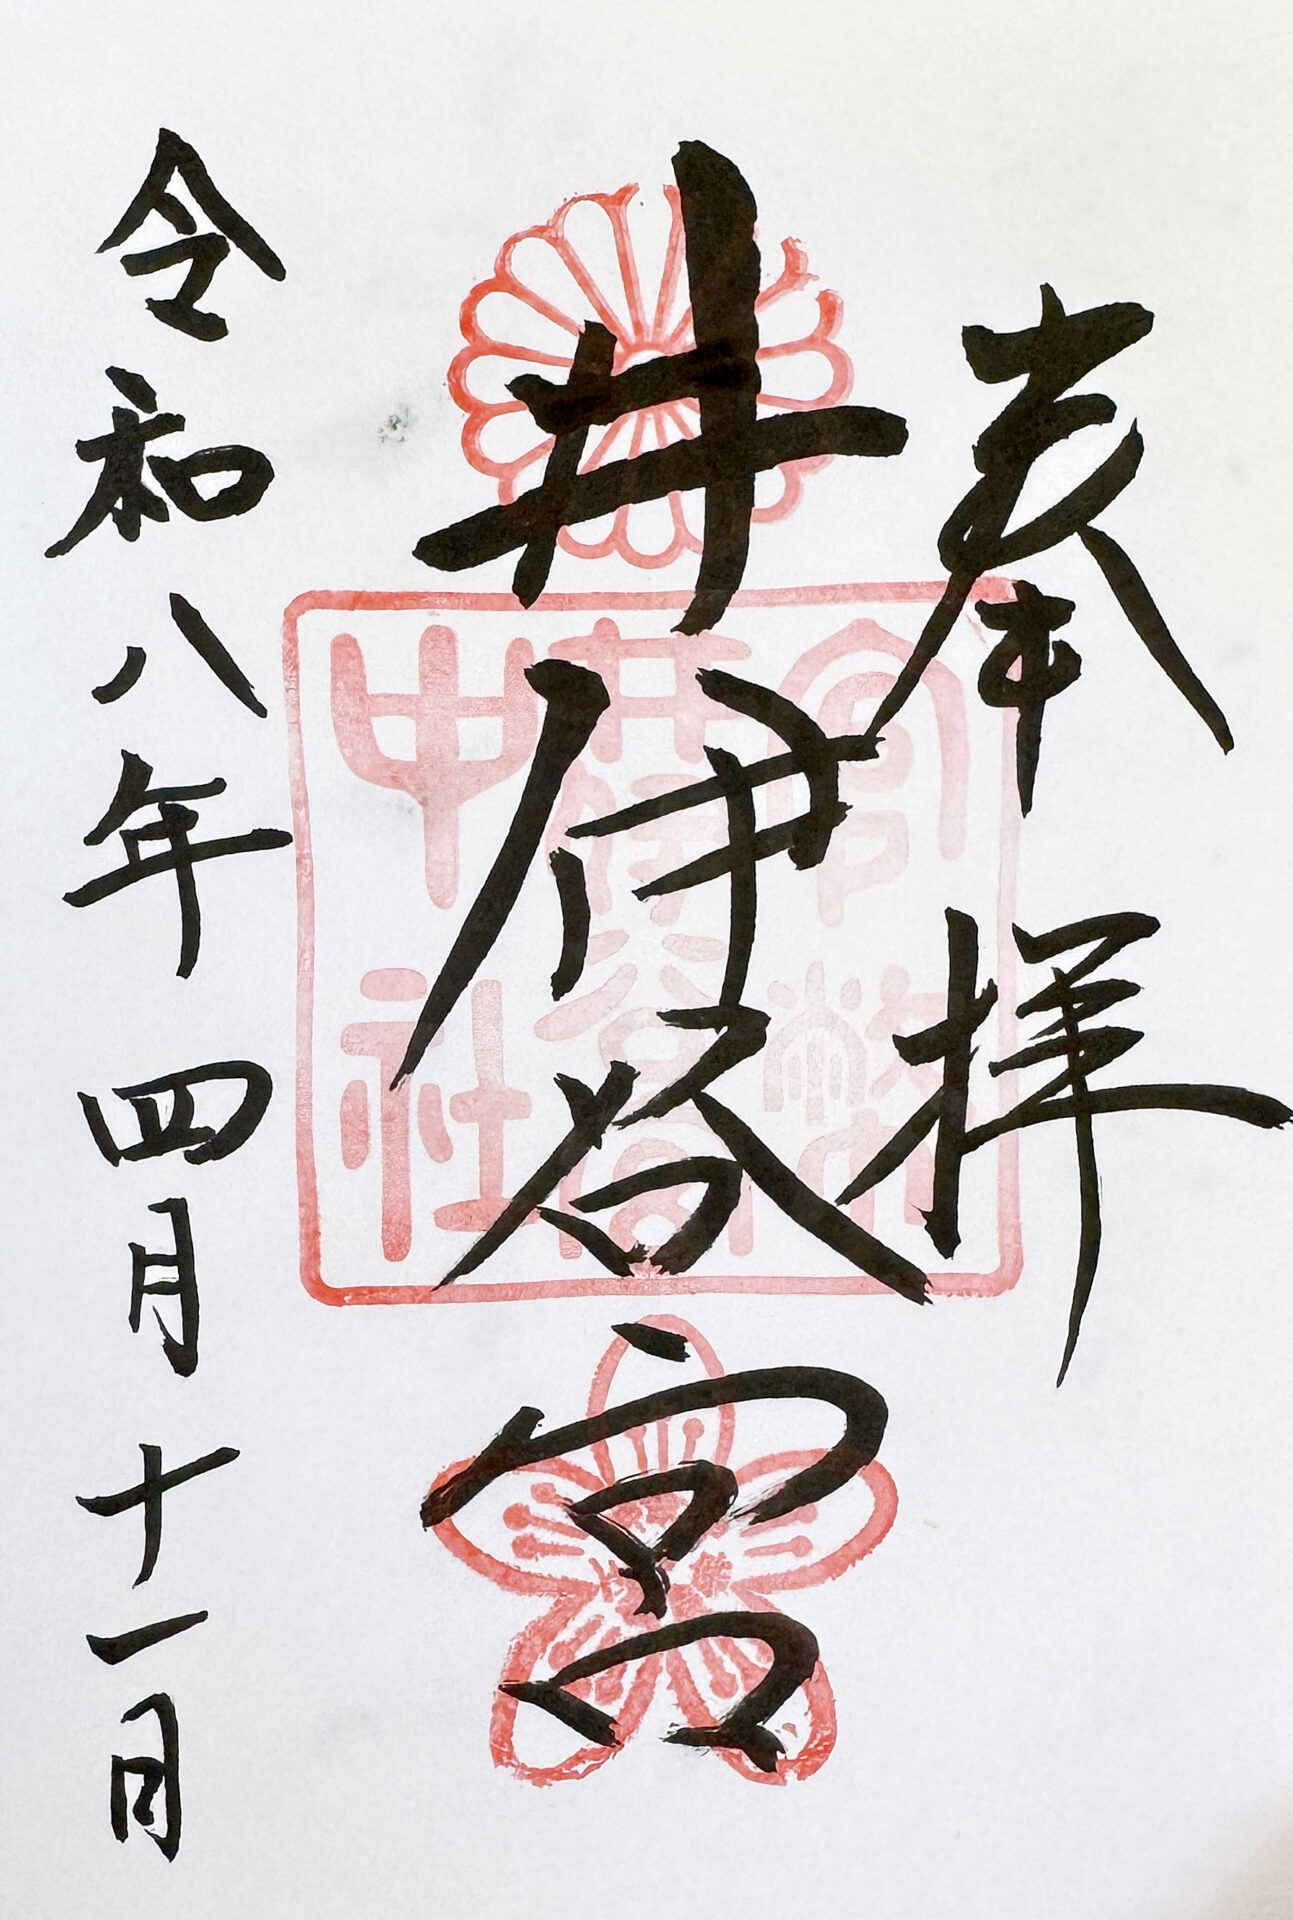 奉拝
井伊谷宮
官幣中社
井伊谷宮
令和八年四月十一日